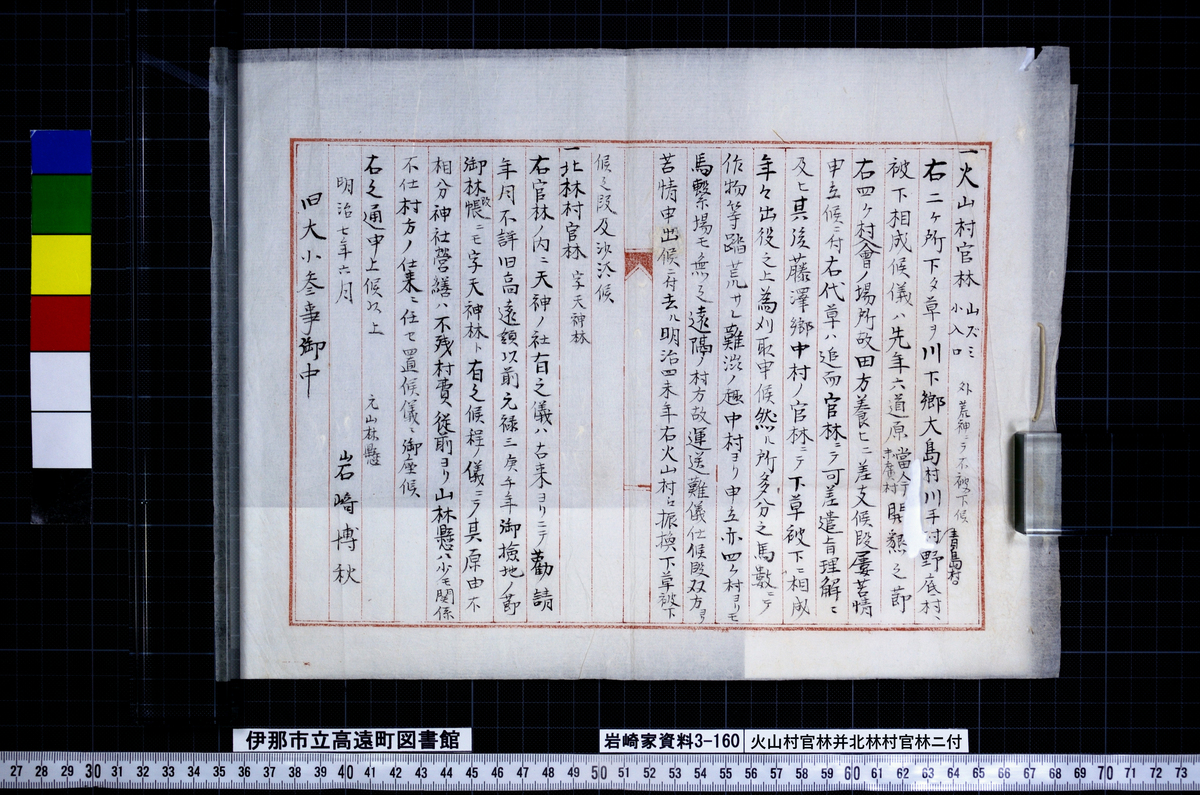 一火山村官林 山ズミ 小入口 外荒神ニテ不被下候
右二ヶ所下タ草ヲ川下郷大島村川手村青島村野底村、
被下相成候儀ハ先年六道原當今末廣村開懇之節
右四ヶ村會ノ場所故田方養ヒニ差支候段屢苦情
申立候ニ付右代草ハ追而官林ニテ可差遣旨理解ニ
及ヒ其後藤澤郷中村ノ官林ニテ下草被下ニ相成
年々出役之上為刈取申候然ル所多分之馬數ニテ
作物等踏荒サレ難渋ノ趣中村ヨリ申立亦四ヶ村ヨリモ
馬繋場モ無之遠隔ノ村方故運送難儀仕候段双方ヨリ
苦情申出候ニ付去ル明治四未年右火山村江振換下草被下
候之段及沙汰候
一北林村官林 字天神林
右官林ノ内ニ天神ノ社有之儀ハ古来ヨリニテ勸請
年月不詳旧高遠領以前元禄三庚午年御檢地ノ節
御林改帳ニモ字天神林ト有之候程ノ儀ニテ其原由不
相分神社營繕ハ不残村費従前ヨリ山林懸ハ少モ関係
不仕村方ノ仕来ニ任セ置候儀ニ御座候
右之通申上候以上
明治七年六月
元山林懸
岩崎博秋
旧大小参事御中
伊那市立高遠町図書館
岩崎家資料3-160 火山村官林并北林村官林ニ付
27 28 29 30 31 32 33 34 35 36 37 38 39 40 41 42 43 44 45 46 47 48 49 50 51 52 53 54 55 56 57 58 59 60 61 62 63 64 65 66 67 68 69 70 71 72 73